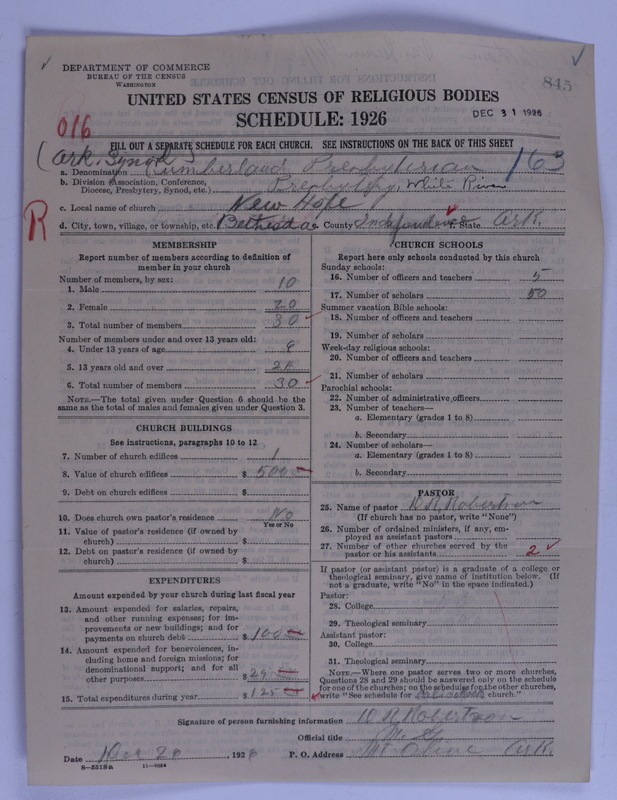 DEPARTMENT OF COMMERCE
BUREAU OF THE CENSUS
WASHINGTON
845
UNITED STATES CENSUS OF RELIGIOUS BODIES
SCHEDULE: 1926
DEC 31 1926
016
FILL OUT A SEPARATE SCHEDULE FOR EACH CHURCH. SEE INSTRUCTIONS ON THE BACK OF THIS SHEET
(Ark. Synod)
163
a. Denomination Cumberland Presbyterian
b. Division (Association, Conference, Diocese, Presbytery, Synod, etc.) Presbytery, White River
c. Local name of church New Hope
R
d. City, town, village, or township, etc. Bethesda e. County Independence f. State Ark.
MEMBERSHIP
Report number of members according to definition of member in your church
Number of members, by sex:
1. Male 10
2. Female 20
3. Total number of members 30
Number of members under and over 13 years old:
4. Under 13 years of age
5. 13 years old and over
6. Total number of members 30
NOTE.—The total given under Question 6 should be the same as the total of males and females given under Question 3.
CHURCH BUILDINGS
See instructions, paragraphs 10 to 12
7. Number of church edifices 1
8. Value of church edifices $ 500
9. Debt on church edifices $
10. Does church own pastor's residence No
Yes or No
11. Value of pastor's residence (if owned by church) $
12. Debt on pastor's residence (if owned by church) $
EXPENDITURES
Amount expended by your church during last fiscal year
13. Amount expended for salaries, repairs, and other running expenses; for improvements or new buildings; and for payments on church debt $ 100
14. Amount expended for benevolences, including home and foreign missions; for denominational support; and for all other purposes $ 25
15. Total expenditures during year $ 125
CHURCH SCHOOLS
Report here only schools conducted by this church
Sunday schools:
16. Number of officers and teachers 5
17. Number of scholars 50
Summer vacation Bible schools:
18. Number of officers and teachers
19. Number of scholars
Week-day religious schools:
20. Number of officers and teachers
21. Number of scholars
Parochial schools:
22. Number of administrative officers
23. Number of teachers—
a. Elementary (grades 1 to 8)
b. Secondary
24. Number of scholars—
a. Elementary (grades 1 to 8)
b. Secondary
PASTOR
25. Name of pastor Robertson
(If church has no pastor, write "None")
26. Number of ordained ministers, if any, employed as assistant pastors
27. Number of other churches served by the pastor or his assistants 2
If pastor (or assistant pastor) is a graduate of a college or theological seminary, give name of institution below. (If not a graduate, write "No" in the space indicated.)
Pastor:
28. College
29. Theological seminary
Assistant pastor:
30. College
31. Theological seminary
NOTE.—Where one pastor serves two or more churches, Questions 28 and 29 should be answered only on the schedule for one of the churches; on the schedules for the other churches, write "See schedule for church."
Signature of person furnishing information Robertson
Official title
Date Dec 28, 1926
P. O. Address Mt Olive Ark.
8-5518a